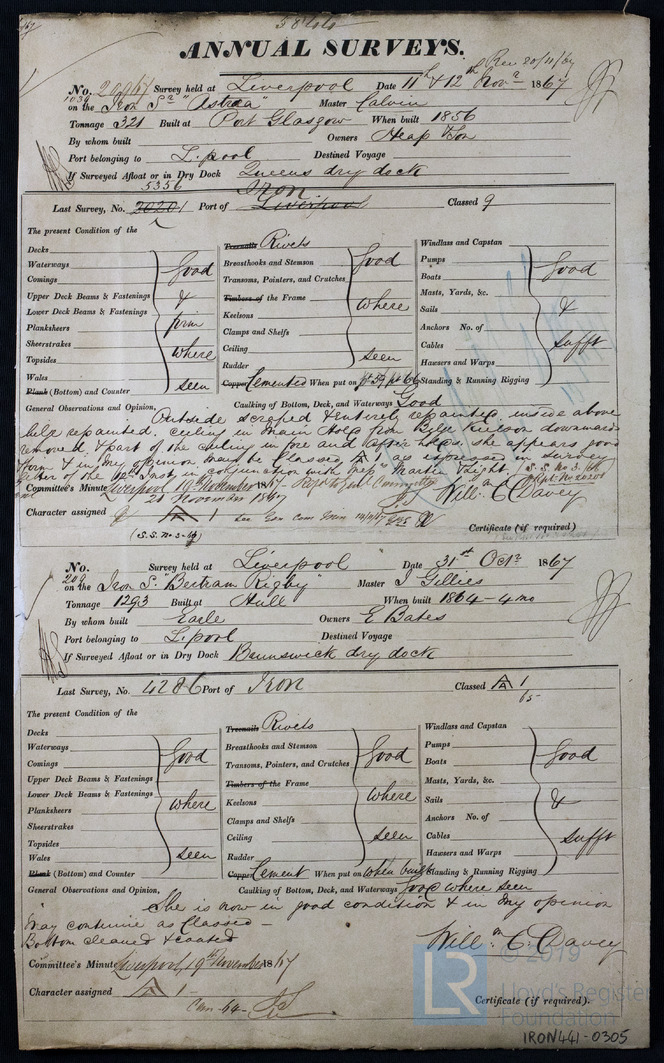 ANNUAL SURVEYS.
Rec 20/11/67
No. Survey held at Liverpool Date 11th & 12th Novr 1867
on the Iron Sr "Astræa" Master Calvin
Tonnage 321 Built at Port Glasgow When built 1856
By whom built Owners Heap & Son
Port belonging to L.pool Destined Voyage
If Surveyed Afloat or in Dry Dock Queens dry dock
5356 Iron
Last Survey, No. Port of Liverpool Classed 9
The present Condition of the
Decks
Waterways
Comings
Upper Deck Beams & Fastenings
Lower Deck Beams & Fastenings
Planksheers
Sheerstrakes
Topsides
Wales
Plank (Bottom) and Counter
Good
&
firm
where
seen
Treenails Rivets
Breasthooks and Stemson
Transoms, Pointers, and Crutches
Timbers of the Frame
Keelsons
Clamps and Shelfs
Ceiling
Rudder
Copper Cemented When put on
Good
where
seen
Windlass and Capstan
Pumps
Boats
Masts, Yards, &c.
Sails
Anchors No. of
Cables
Hawsers and Warps
Standing & Running Rigging
Good
&
sufft
General Observations and Opinion, Caulking of Bottom, Deck, and Waterways Good
Outside scraped & entirely repainted, inside above
help repainted. Ceiling in Main Hold from Bilge Keelson downwards
removed & part of the ceiling in fore and after holds. She appears good
form & in my opinion may be Classed A as expressed in Survey
letter of the 12th Inst in conjunction with Mess Martin & Light.
Committee's Minute Liverpool 19th November 1867
21 November 1867
Will m C. Davey
Character assigned A 1
Certificate (if required)
(S.S. No. 3-67)
No. Survey held at Liverpool Date 31st Octr 1867
209
on the Iron S. "Bertram Rigby" Master J Gillies
Tonnage 1293 Built at Hull When built 1864-4mo
By whom built Earle Owners E Bates
Port belonging to L.pool Destined Voyage
If Surveyed Afloat or in Dry Dock Brunswick dry dock
Last Survey, No. 4286 Port of Iron Classed A 1
65-
The present Condition of the
Decks
Waterways
Comings
Upper Deck Beams & Fastenings
Lower Deck Beams & Fastenings
Planksheers
Sheerstrakes
Topsides
Wales
Plank (Bottom) and Counter
Good
where
seen
Treenails Rivets
Breasthooks and Stemson
Transoms, Pointers, and Crutches
Timbers of the Frame
Keelsons
Clamps and Shelfs
Ceiling
Rudder
Copper Cement When put on when built
Good
where
seen
Windlass and Capstan
Pumps
Boats
Masts, Yards, &c.
Sails
Anchors No. of
Cables
Hawsers and Warps
Standing & Running Rigging
Good
&
sufft
General Observations and Opinion, Caulking of Bottom, Deck, and Waterways Good where seen
She is now in good condition & in my opinion
may continue as Classed -
Bottom cleaned & coated
Will m C. Davey
Committee's Minute Liverpool, 19th November 1867
Character assigned A 1-
Certificate (if required).
LR
© 2019
Lloyd's Register
Foundation
IRON441-0305